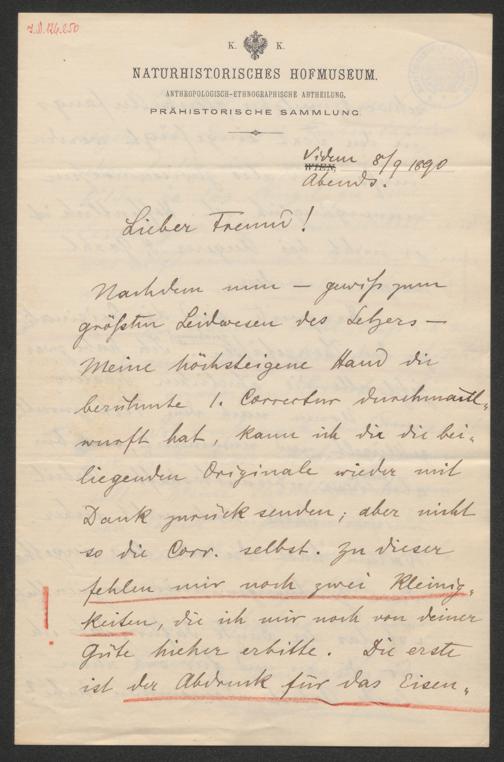 J.N. 126.850
K. K.
NATURHISTORISCHES HOFMUSEUM.
ANTHROPOLOGISCH-ETHNOGRAPHISCHE ABTHEILUNG.
PRÄHISTORISCHE SAMMLUNG.
Videm 8/9 1890
WIEN,
Abends.
Lieber Freund!
Nachdem nun – gewiß zum
größten Leidwesen des Setzers –
Meine höchsteigene Hand die
berühmte 1. Correctur durchmault-
wurft hat, kann ich die die bei-
liegenden Originale wieder mit
Dank zurück senden; aber nicht
so die Corr. selbst. Zu dieser
fehlen mir noch zwei Kleinig-
keiten, die ich mir noch von deiner
Güte hieher erbitte. Die erste
ist der Abdruck für das Eisen-